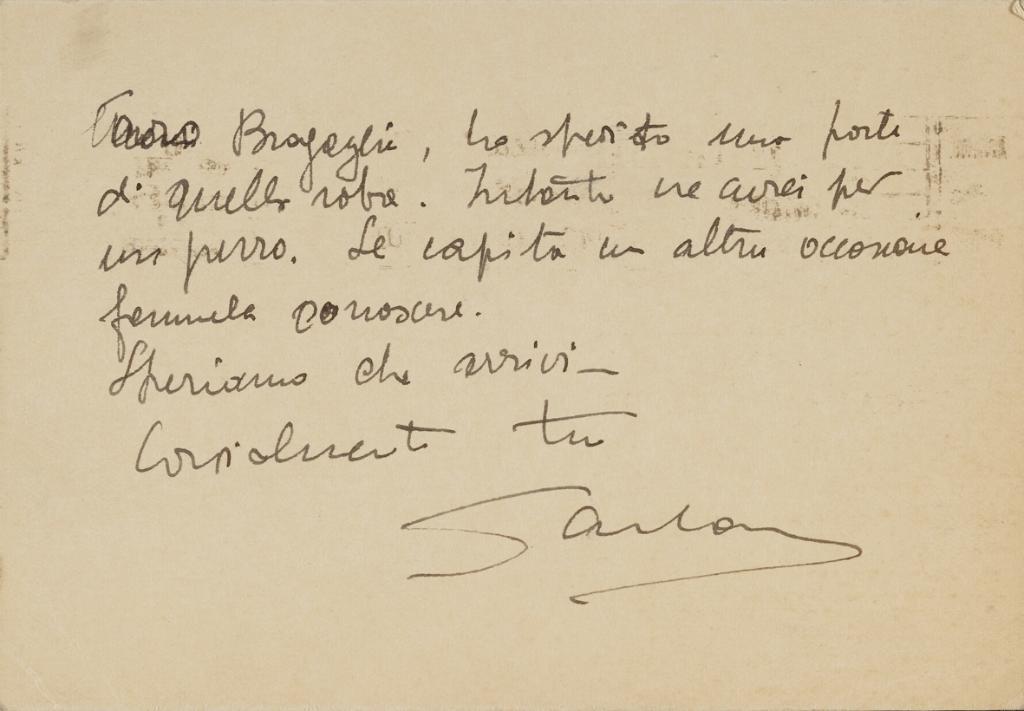 Caro Bragaglia, ho spedito una parte
di quella roba. Intanto ne avrei per
un pezzo. Se capita un altra occasione
fammela conoscere.
Speriamo che arrivi —
Cordialmente tuo